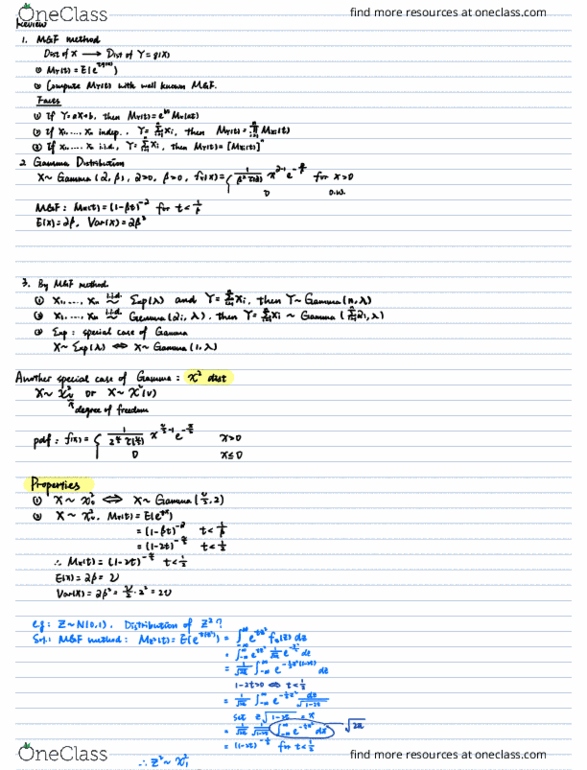 OneClass
find more resources at oneclass.com
Review
1. MGF method
Dist of X → Dist of Y = g(X)
① MY(t) = E(e^{tg(x)})
② Compute MY(t) with well known MGF.
Facts
① If Y = aX+b, then MY(t) = e^{bt} MX(at)
② If X1, ..., Xn indep., Y = Σ_{i=1}^{n} Xi, then MY(t) = Π_{i=1}^{n} MXi(t)
③ If X1, ..., Xn i.i.d, Y = Σ_{i=1}^{n} Xi, then MY(t) = [MX(t)]^n
2. Gamma Distribution
X ~ Gamma (α, β), α>0, β>0, fX(x) = { 1/(β^α Γ(α)) x^{α-1} e^{-x/β} for x>0
0 o.w.
MGF: MX(t) = (1-βt)^{-α} for t < 1/β
E(X) = αβ, Var(X) = αβ²
3. By MGF method
① X1, ..., Xn i.i.d. ~ Exp(λ) and Y = Σ_{i=1}^{n} Xi, then Y ~ Gamma (n, λ)
② X1, ..., Xn ~ Gamma (αi, λ), then Y = Σ_{i=1}^{n} Xi ~ Gamma (Σ_{i=1}^{n} αi, λ)
③ Exp : special case of Gamma
X ~ Exp(λ) ⇔ X ~ Gamma (1, λ)
Another special case of Gamma : χ² dist
X ~ χ²_ν or X ~ χ²(ν)
degree of freedom
pdf : f(x) = { 1/(2^{ν/2} Γ(ν/2)) x^{ν/2-1} e^{-x/2} x>0
0 x≤0
Properties
① X ~ χ²_ν ⇔ X ~ Gamma (ν/2, 2)
② X ~ χ²_ν, MX(t) = E(e^{tX})
= (1-βt)^{-α} t < 1/β
= (1-2t)^{-ν/2} t < 1/2
∴ MX(t) = (1-2t)^{-ν/2} t < 1/2
E(X) = αβ = ν
Var(X) = αβ² = ν/2 · 2² = 2ν
eg: Z ~ N(0,1). Distribution of Z² ?
Sol: MGF method : MZ²(t) = E(e^{t(Z²)}) = ∫_{-∞}^{∞} e^{tz²} fZ(z) dz
= ∫_{-∞}^{∞} e^{tz²} 1/√2π e^{-z²/2} dz
= 1/√2π ∫_{-∞}^{∞} e^{-½z²(1-2t)} dz
1-2t>0 ⇔ t < 1/2
= 1/√2π ∫_{-∞}^{∞} e^{-½x²} dx/√1-2t
set z√1-2t = x
= 1/√2π 1/√1-2t ∫_{-∞}^{∞} e^{-½x²} dx √2π
= (1-2t)^{-½} for t < ½
∴ Z² ~ χ²_1
OneClass
find more resources at oneclass.com